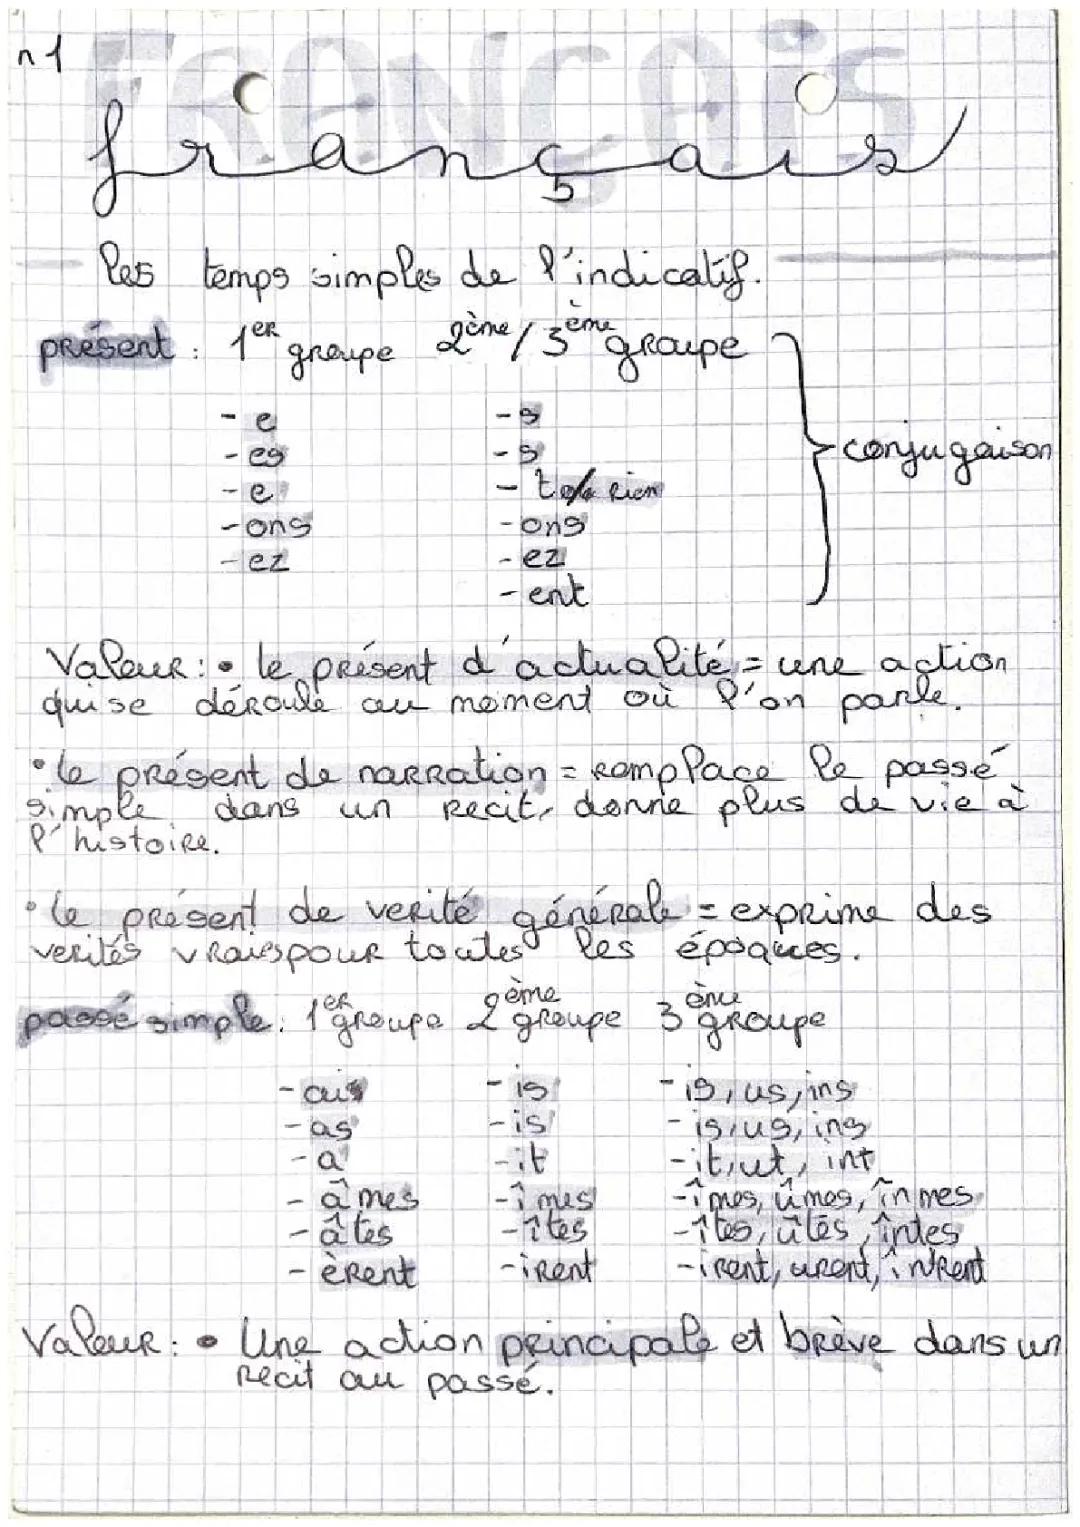 n 1
FRANÇAIS
français
les temps simples de l'indicatif.
présent : 1er groupe 2ème / 3ème groupe
- e - s
- es - s
- e - t rien
- ons - ons
- ez - ez
- ent
conjugaison
Valeur : • le présent d'actualité = une action
qui se déroule au moment où l'on parle.
• le présent de narration = remplace le passé
simple dans un recit, donne plus de vie à
l'histoire.
• le présent de verité générale = exprime des
verités vrais pour toutes les époques.
passé simple : 1er groupe 2ème groupe 3ème groupe
- ais - is - is, us, ins
- as - is - is, us, ins
- a - it - it, ut, int
- âmes - îmes - îmes, ûmes, înmes
- âtes - îtes - îtes, ûtes, întes
- èrent - irent - irent, urent, înrent
Valeur : • Une action principale et brève dans un
recit au passé.